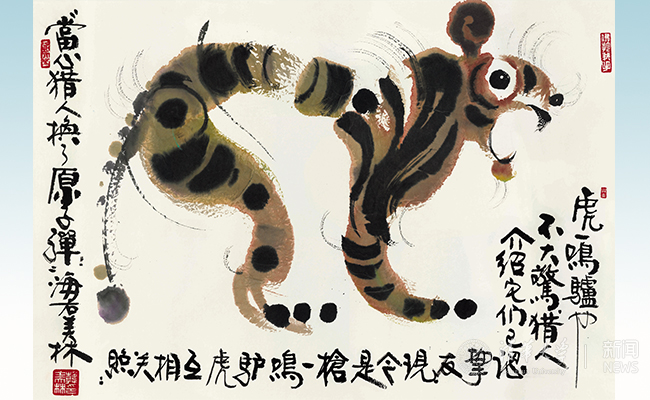 虎一鳴驢也
不大驚猎人
介绍它们已認
摯友現今是槍一鳴驴虎互相关照
當心猎人換了原子彈
海右美林
新闻
NEWS